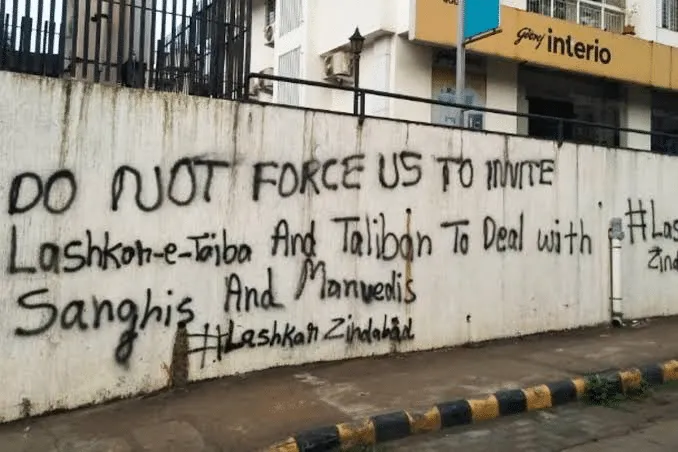 Godrej interio
DO NOT FORCE US TO INVITE
Lashkar-e-Taiba And Taliban To Deal with
Sanghis And Manvedis
#Lashkar Zindabad
#Las
Zind